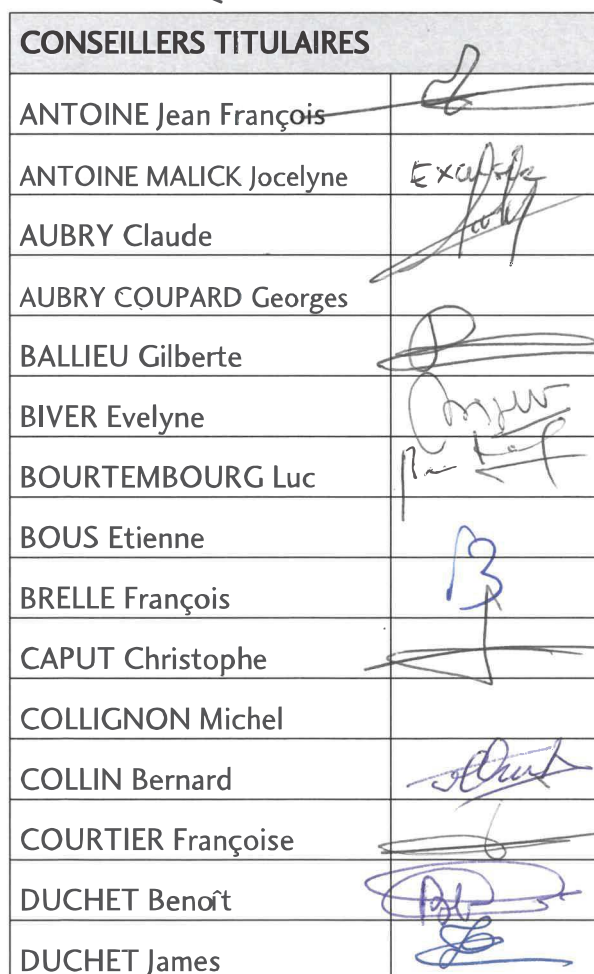 CONSEILLERS TITULAIRES
ANTOINE Jean François
ANTOINE MALICK Jocelyne
AUBRY Claude
AUBRY COUPARD Georges
BALLIEU Gilberte
BIVER Evelyne
BOURTEMBOURG Luc
BOUS Etienne
BRELLE François
CAPUT Christophe
COLLIGNON Michel
COLLIN Bernard
COURTIER Françoise
DUCHET Benoît
DUCHET James